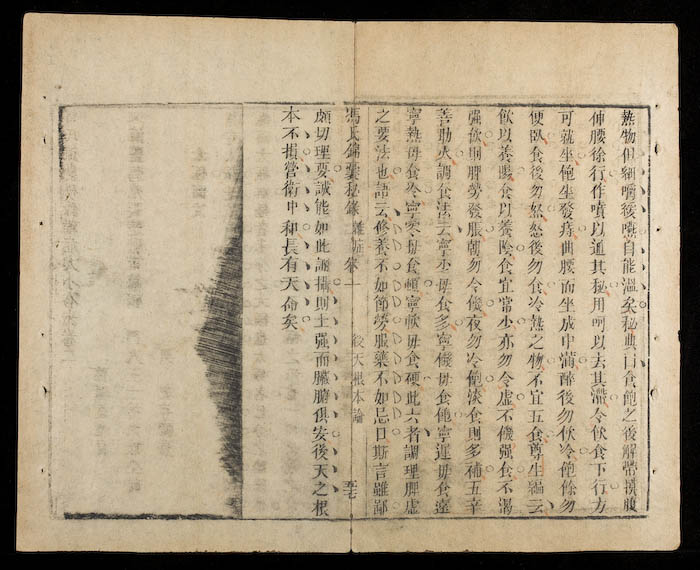 熱物但細嚼緩嚥自能溫矣秘典曰食飽之後解帶摸腹
伸腰徐行作噴以通其秘用呵以去其滯令飲食下行方
可就坐飽坐發痔曲腰而坐成中滿醉後勿飲冷飽餘勿
便臥食後勿怒怒後勿食冷熱之物不宜互食尊生編云
飲以養陽食以養陰食宜常少亦勿令虛不饑强食不渴
强飲則脾勞發脹朝勿令饑夜勿令飽淡食則多補五辛
善助火調食法云寧少毋食多寧饑毋食飽寧遲毋食速
寧熱毋食冷寧零毋食頓寧軟毋食硬此六者調理脾虛
之要法也語云修養不如節勞服藥不如忌口斯言雖鄙
馮氏錦囊秘錄 雜症卷一 後天根本論 
頗切理要誠能如此調攝則土强而臟腑俱安後天之根
本不損營衛中和長有天命矣